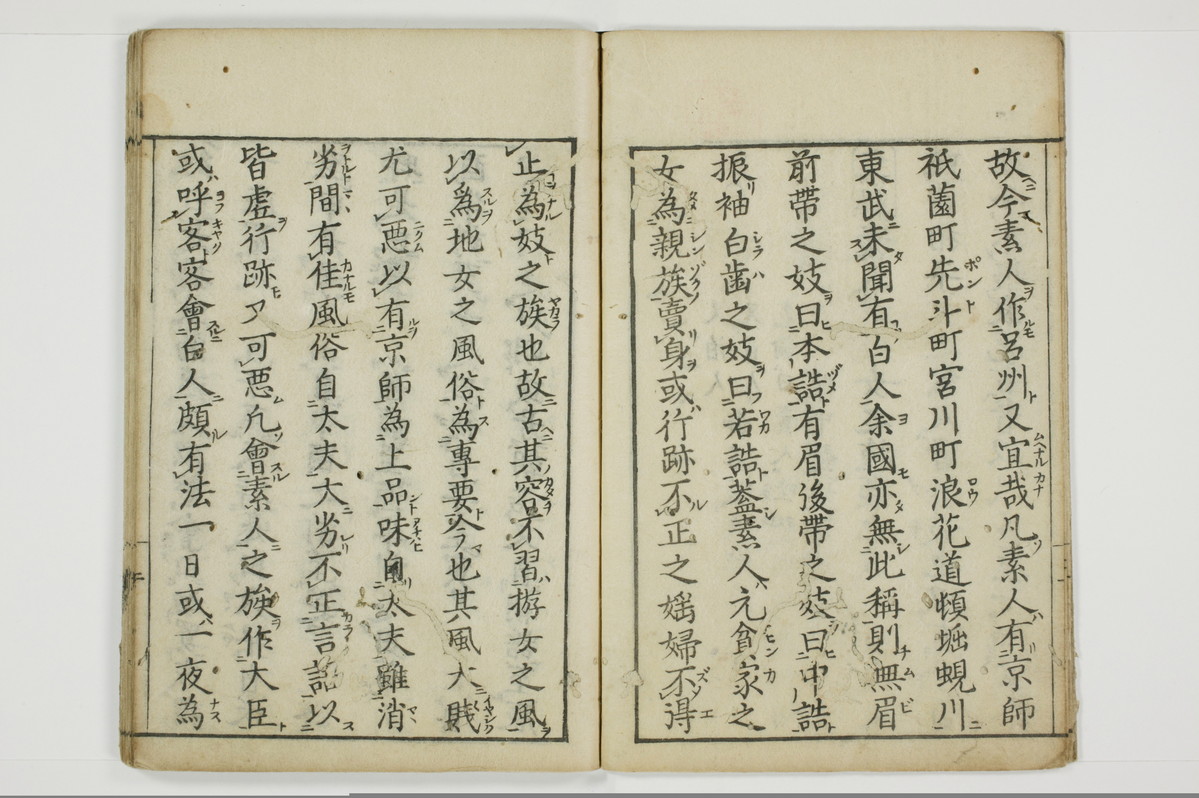 故今素人作呂州又宜哉凡素人有京師
祇薗町先斗町宮川町浪花道頓堀蜆川
東武未聞有白人余國亦無此稱則無眉
前帶之妓曰本詰有眉後帶之妓曰中詰
振袖白歯之妓曰若詰蓋素人元貧家之
女為親族賣身或行跡不正之婬婦不得
止為妓之族也故古其容不習游女之風
以爲地女之風俗為專要今也其風大賎
尤可悪以有京師為上品味自太夫雖消
劣間有佳風俗自太夫大劣不正言語以
皆虚行跡又可悪凡會素人之族作大臣
或呼客客會白人頗有法一日或一夜為